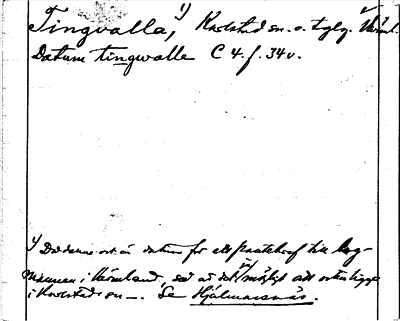 Tingvalla, 1) Karlstad sn. o. tglg. Värml.
Datum tingwalle C 4. f. 34v.
1) Då denna ort är datum för ett pantebref till lag-
mannen i Värmland, är det möjligt att orten ligger
i Karlstad sn —. Se Hjälmarsnäs.